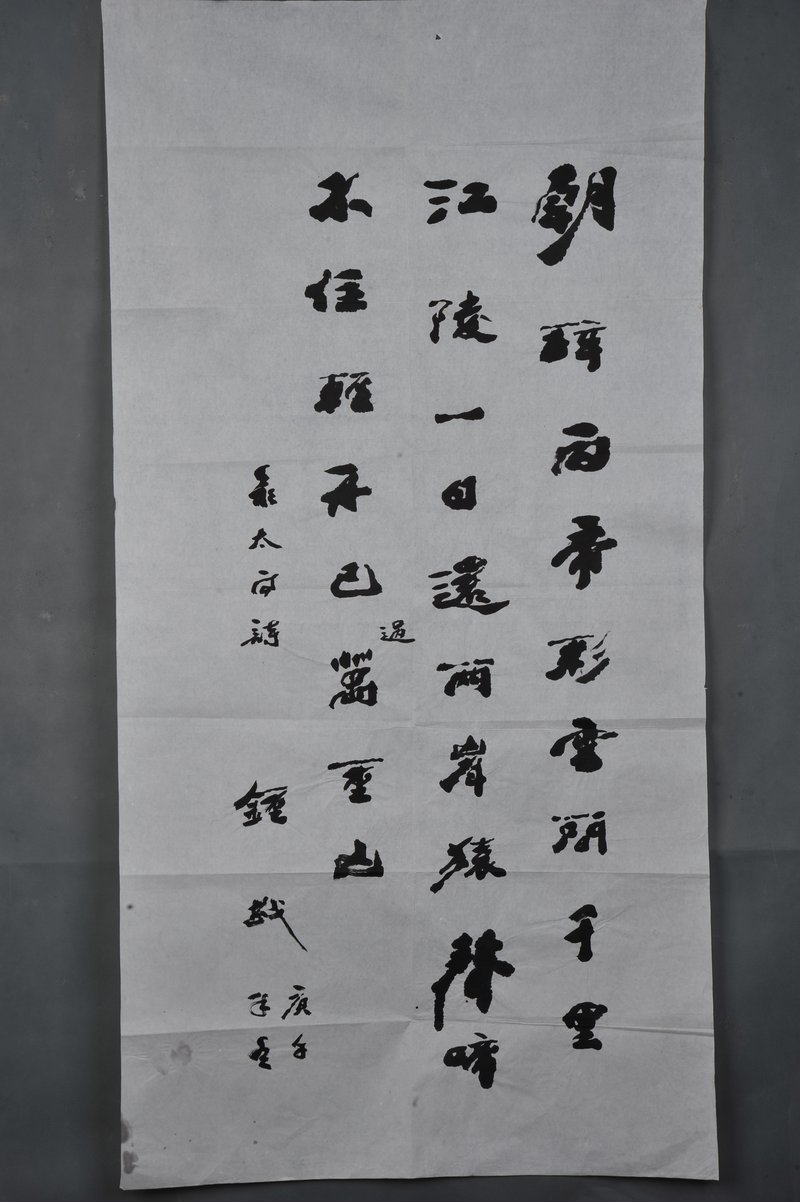 朝辭白帝彩雲間千里
江陵一日還兩岸猿聲啼
不住輕舟已過萬重山
太白詩
鍾
庚午
年